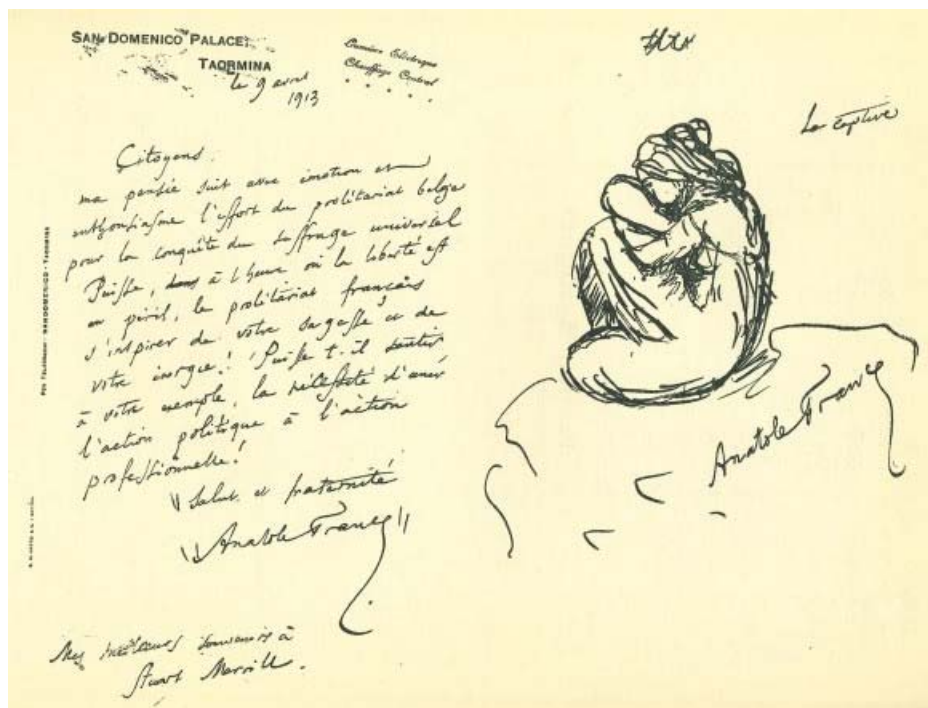 SAN DOMENICO PALACE
TAORMINA
Lumière Electrique
Chauffage Central
le 9 avril
1913
Citoyens.
ma pensée suit avec émotion et
enthousiasme l'effort du prolétariat belge
pour la conquête du suffrage universel
Puisse, dans à l'heure où la liberté est
en péril, le prolétariat français
s'inspirer de votre sagesse et de
votre énergie! Puisse t-il sentir
à votre exemple, la nécessité d'unir
l'action politique à l'action
professionnelle!
Salut et fraternité
Anatole France
Mes meilleurs souvenirs à
Stuart Merrill.
PER TELEGRAMMI: SANDOMENICO - TAORMINA
La captive
Anatole France